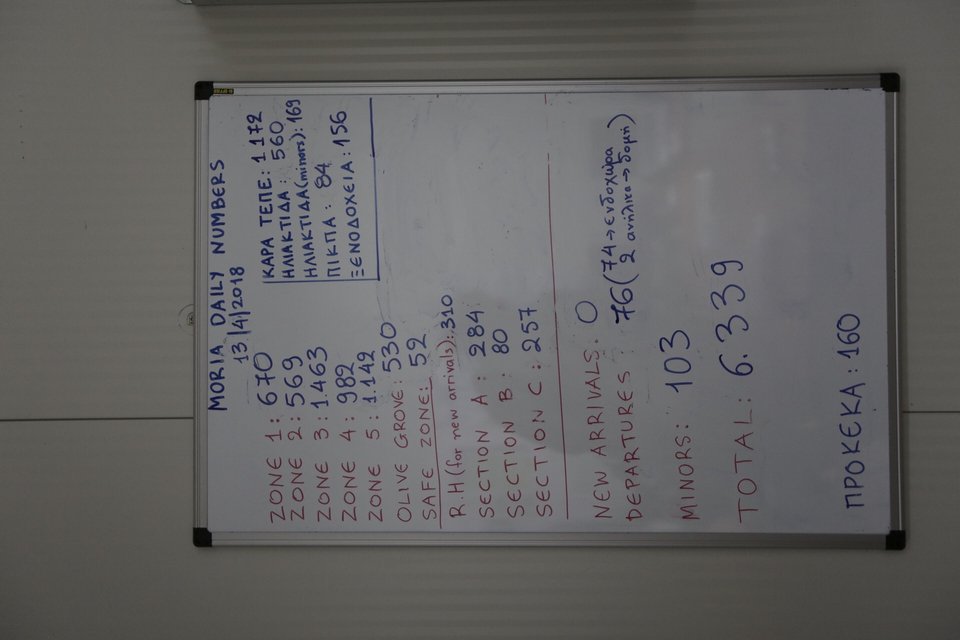 MORIA DAILY NUMBERS
13/4/2018
ZONE 1: 670
ZONE 2: 569
ZONE 3: 1.463
ZONE 4: 982
ZONE 5: 1.142
OLIVE GROVE: 530
SAFE ZONE: 52
ΚΑΡΑ ΤΕΠΕ: 1 172
ΗΛΙΑΚΤΙΔΑ: 560
ΗΛΙΑΚΤΙΔΑ (minors): 169
ΠΙΚΠΑ: 84
ΞΕΝΟΔΟΧΕΙΑ: 156
R.H (for new arrivals): 310
SECTION A: 284
SECTION B: 80
SECTION C: 257
NEW ARRIVALS: 0
DEPARTURES: 76 (74→ενδοχώρα
2 ανήλικα→δομή)
MINORS: 103
TOTAL: 6.339
ΠΡΟΚΕΚΑ: 160